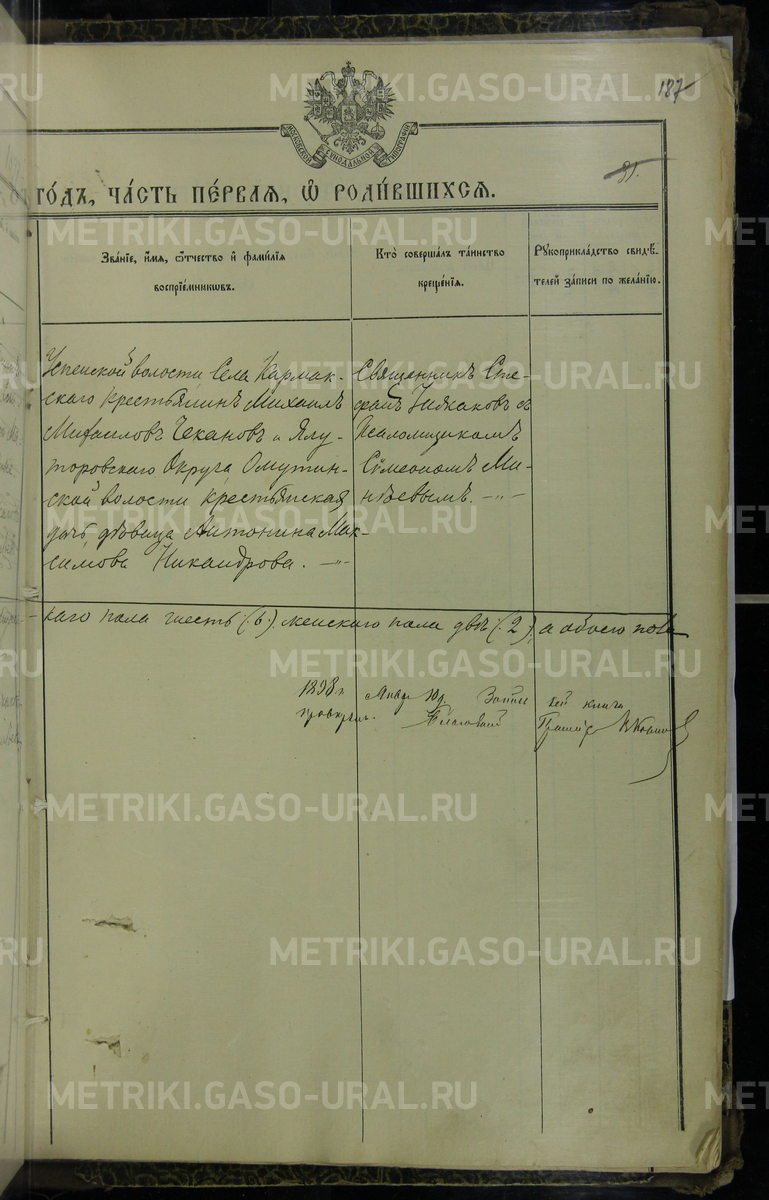 187
МОСКОВСКОЙ СѴНОДАЛЬНОЙ ТИПОГРАФІИ
81.
го́дъ, ча́сть пе́рваѧ, ѡ҆ роди́вшихсѧ.
Зва́нїе, и҆́мѧ, ѻ҆́тчество и҆ фами́лїѧ
воспрїе́мникѡвъ.
Кто̀ соверша́лъ та́инство
креще́нїѧ.
Рꙋкоприкла́дство свидѣ́-
телей за́писи по жела́нїю.
Успенской волости Села Кармак-
скаго крестьянинъ Михаилъ
Михаиловъ Чекановъ и Ялу-
торовскаго Округа, Омутин-
ской волости крестьянская
дочь, дѣвица Антонина Мак-
симова Никандрова. -"-
Священникъ Сте-
фанъ съ
Псаломщикомъ
Сѵмеономъ Ми-
нѣевымъ. -"-
каго пола шесть (.6.) женскаго пола двѣ (.2.), а обоего пола
1898 г.
METRIKI.GASO-URAL.RU